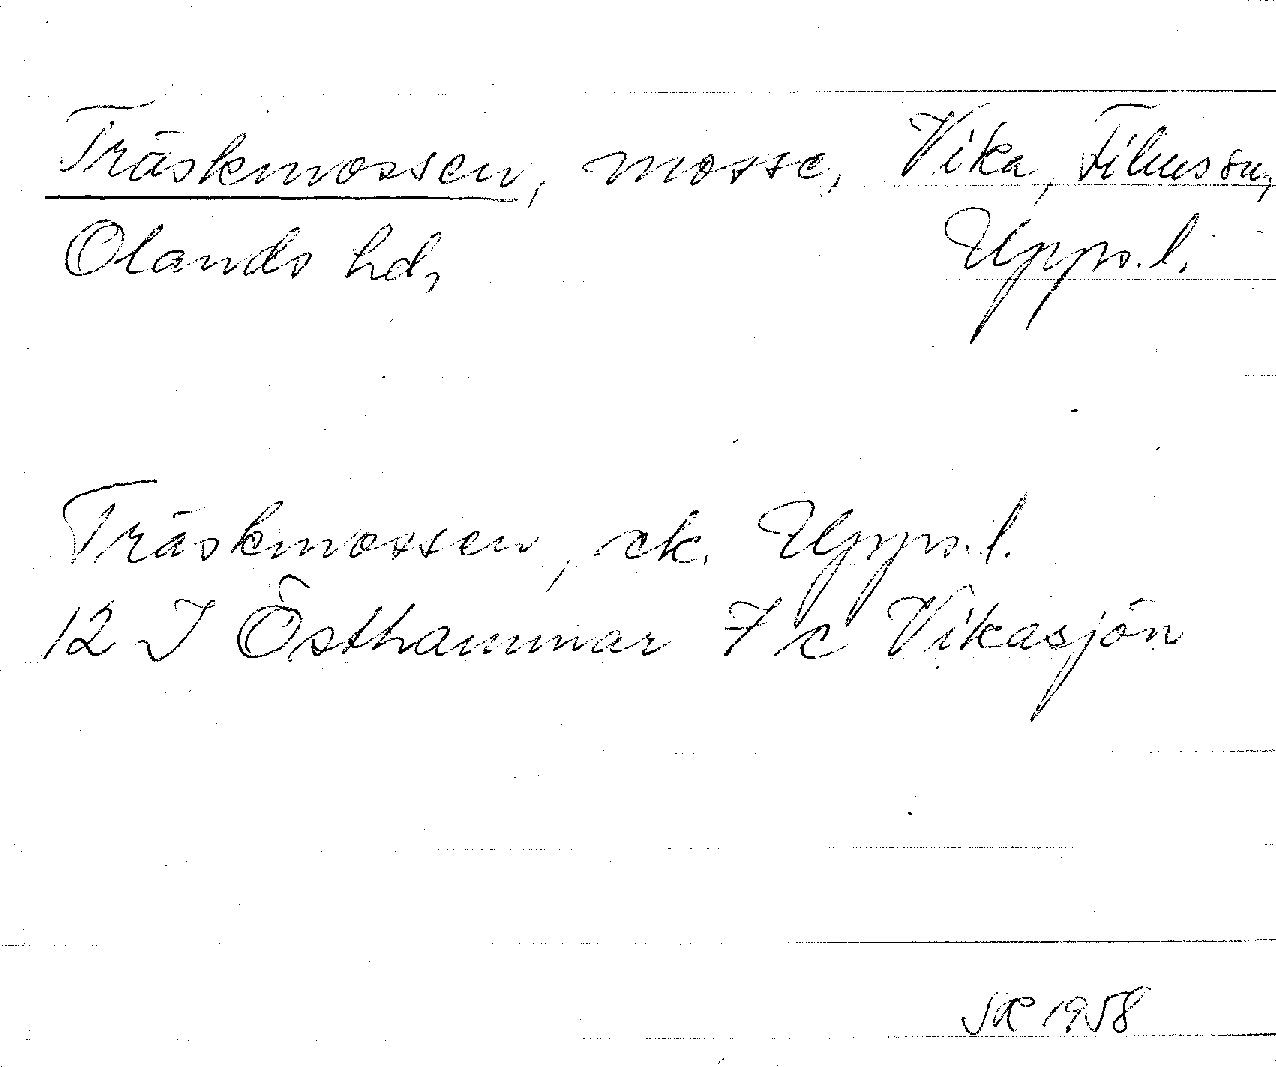 Träskmossen, mosse, Vika, Films sn,
Olands hd, Upps.l.
Träskmossen, ek. Upps.l.
12 I Östhammar 7 c Vikasjön
1958